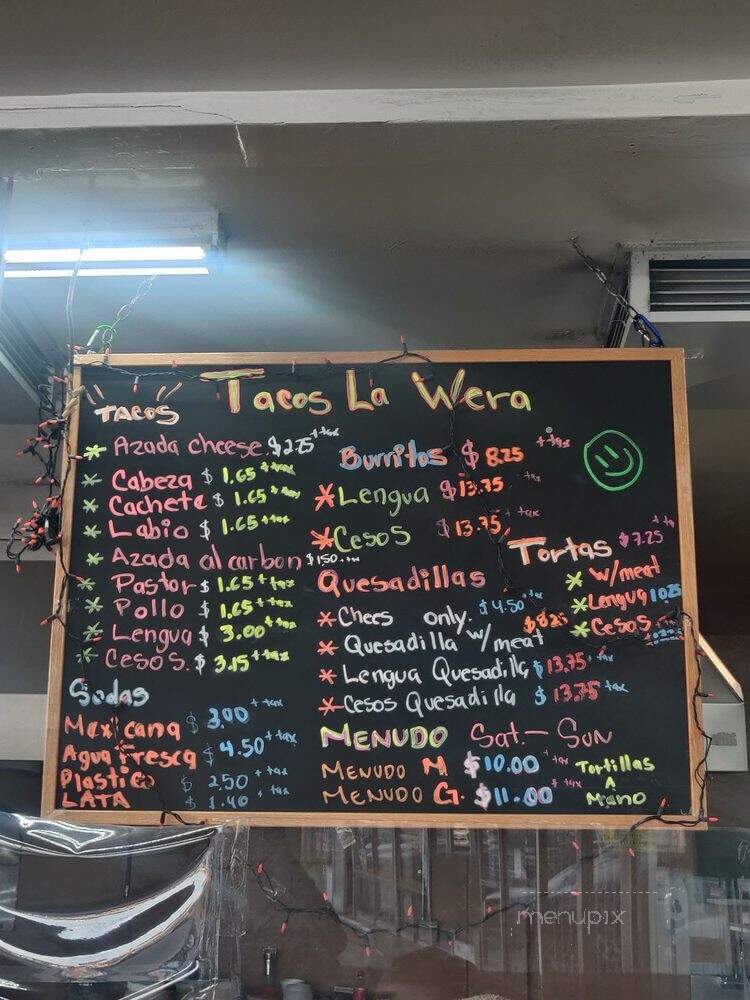 Tacos La Wera
TACOS
Azada cheese. $2.75 + tax
Cabeza $ 1.65 + tax
Cachete $ 1.65 + tax
Labio $ 1.65 + tax
Azada al carbon $150. + tax
Pastor $ 1.65 + tax
Pollo $ 1.65 + tax
Lengua $ 3.00 + tax
Cesos. $ 3.15 + tax
Sodas
Mexicana $ 3.00 + tax
Agua Fresca $ 4.50 + tax
Plastico $ 2.50 + tax
LATA $ 1.40 + tax
Burritos $ 8.25 + tax
Lengua $13.75 + tax
Cesos $13.75 + tax
Quesadillas
Chees only. $4.50 + tax
Quesadilla w/meat $8.25
Lengua Quesadilla $13.75 + tax
Cesos Quesadilla $ 13.75 + tax
MENUDO Sat. - Sun
MENUDO M. $10.00 + tax
MENUDO G. $11.00 + tax
Tortas $7.25 + tax
w/meat
Lengua 10.25
Cesos 10.25
Tortillas
A
Mano
menupix